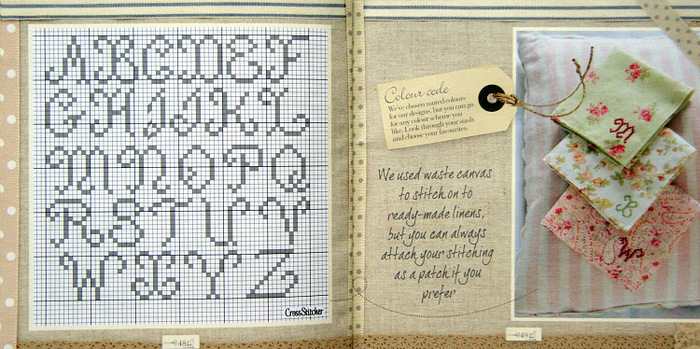 A B C D E F
G H I J K L
M N O P Q
R S T U V
W X Y Z
CrossStitcher
48
Colour code
We've chosen muted colours
for our designs, but you can go
for any colour scheme you
like. Look through your stash
and choose your favourites.
We used waste canvas
to stitch on to
ready-made linens,
but you can always
attach your stitching
as a patch if you
prefer
M
M
49